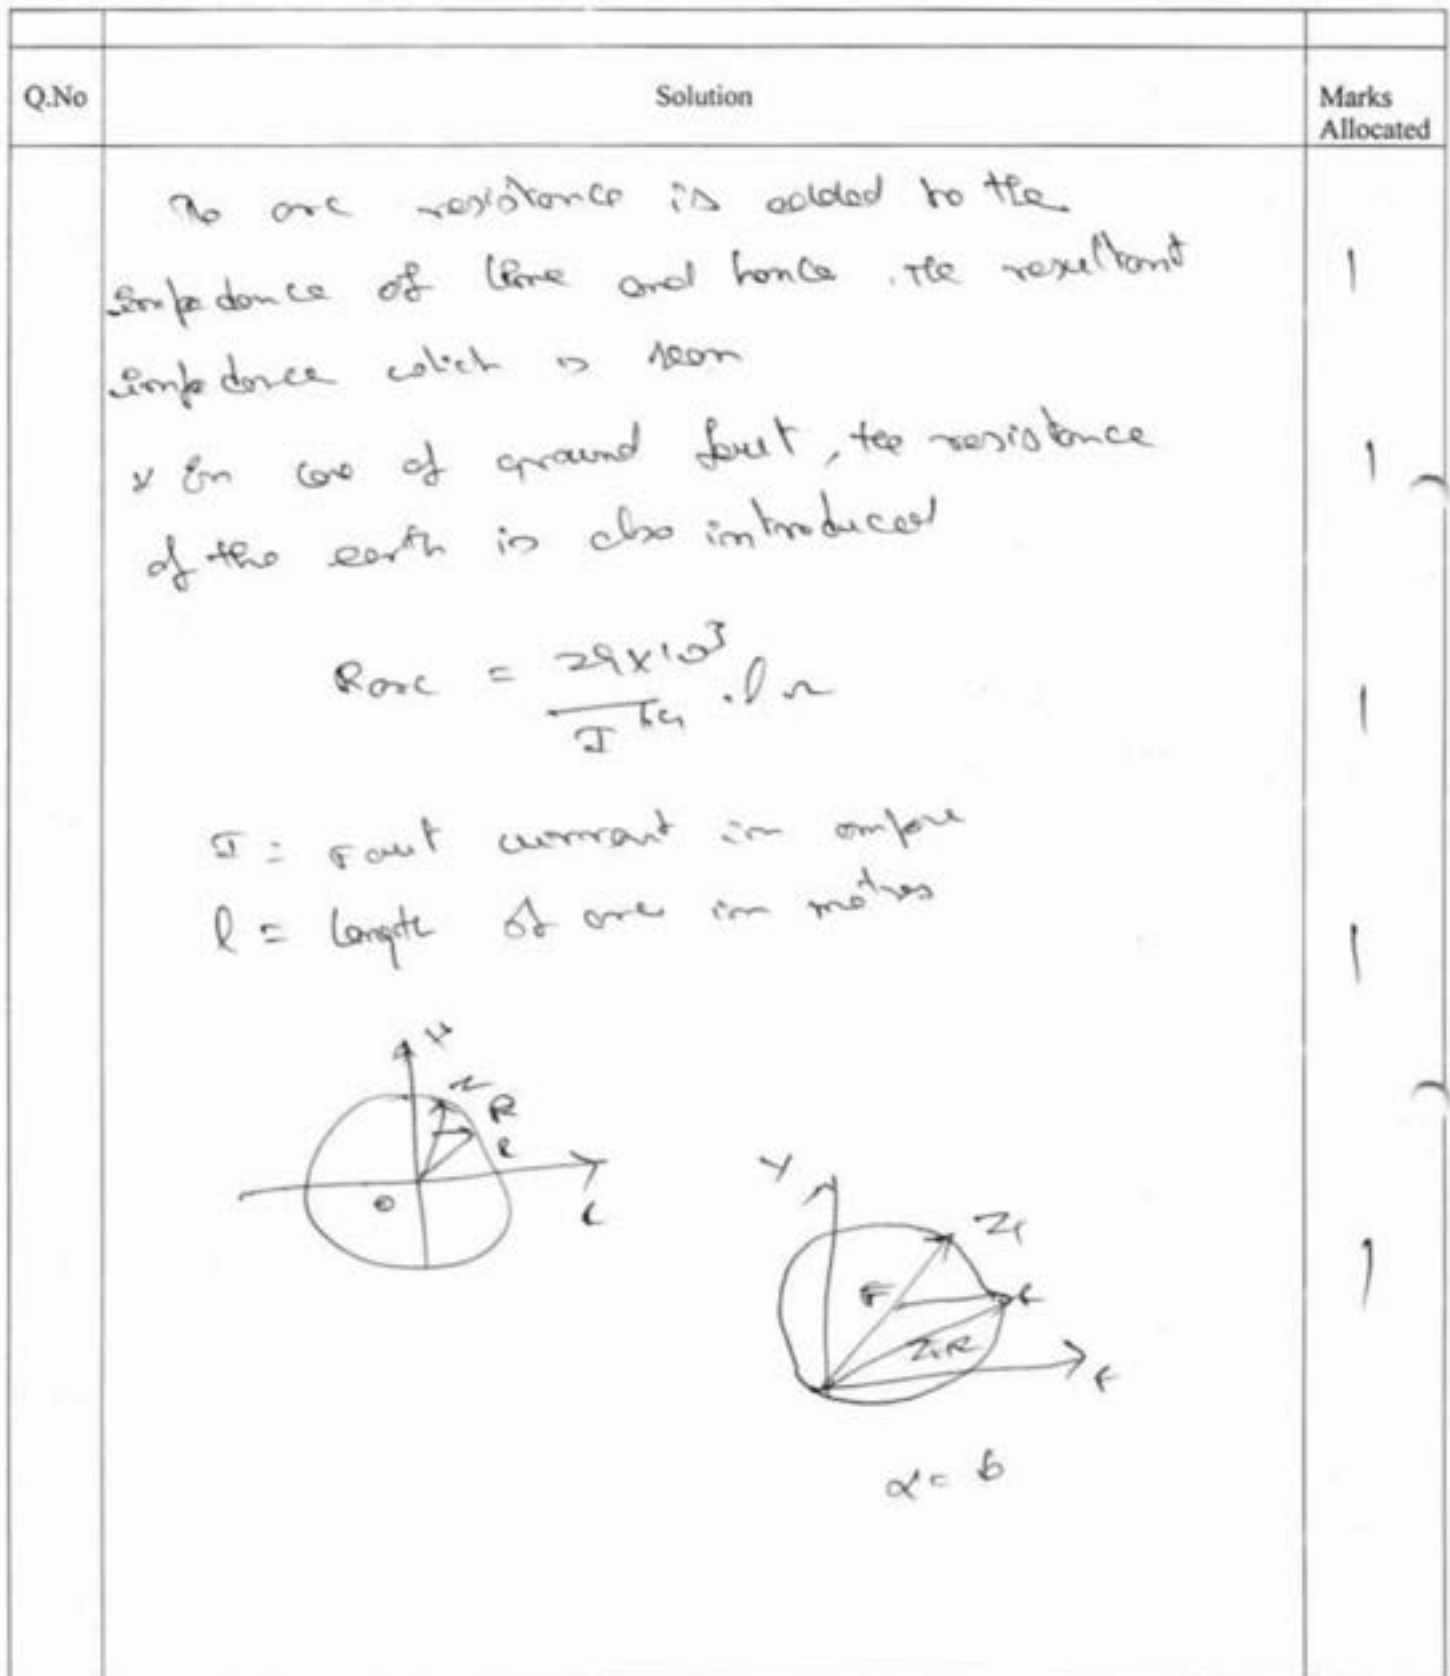 Q.No
Solution
Marks
Allocated
arc resistance is added to the
impedance of line and hence, the resultant
1
impedance which is seen
in case of ground fault, the resistance
1
of the earth is also introduced
Rarc = 29x10³ / I^1.4 . l Ω
1
I = Fault current in ampere
l = Length of arc in metres
1
R
R
Z
ZrR
F
1
α = b